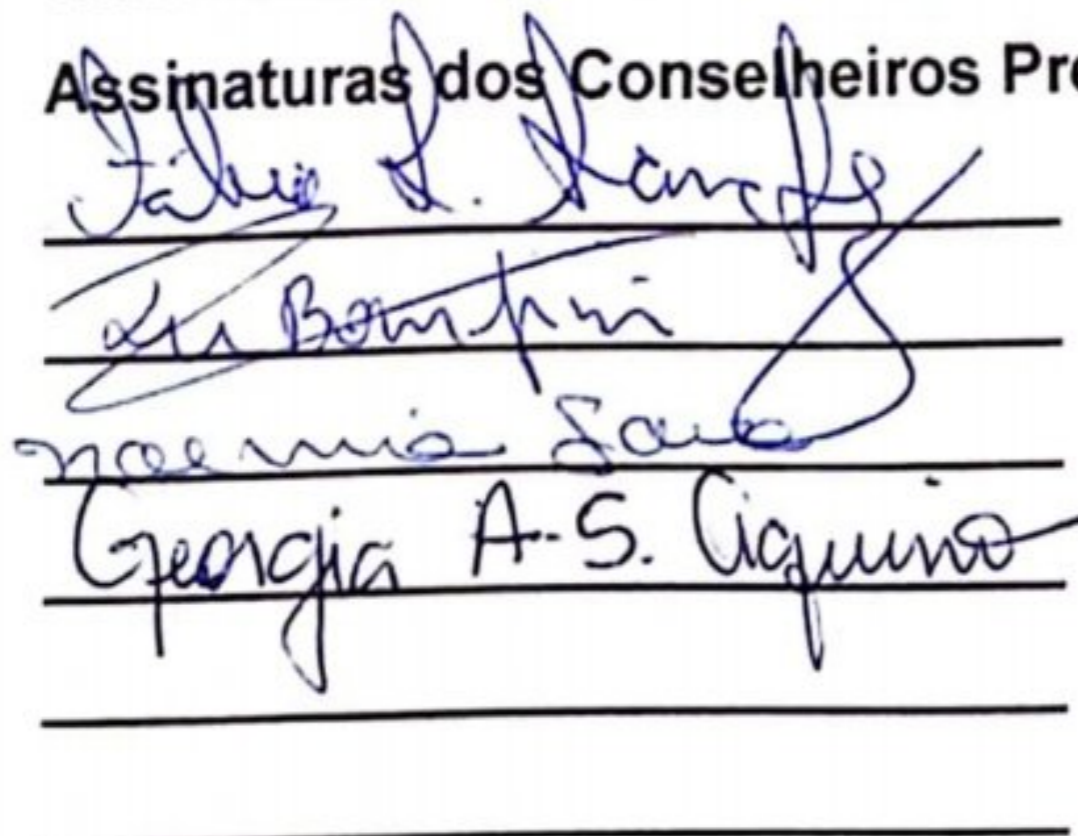 Assinaturas dos Conselheiros Pre
Fábio L.
Bomfim
Noemia
Georgia A.S. Aquino